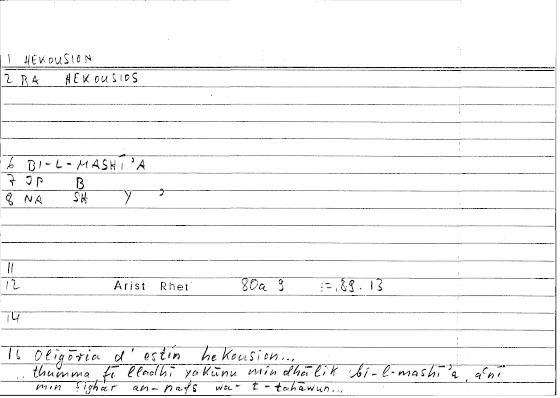 1 HEKOUSION
2 RA HEKOUSIOS
6 BI-L-MASHĪ'A
7 JP B
8 NA SH Y '
11
12 Arist Rhet 80a 9 := 89.13
14
16 Oligōria d' estin hekousion...
thumma fī lladhī yakūnu min dhālik bi-l-mashī'a, a'nī
min ṣighar an-nafs wa-t-tahāwun...